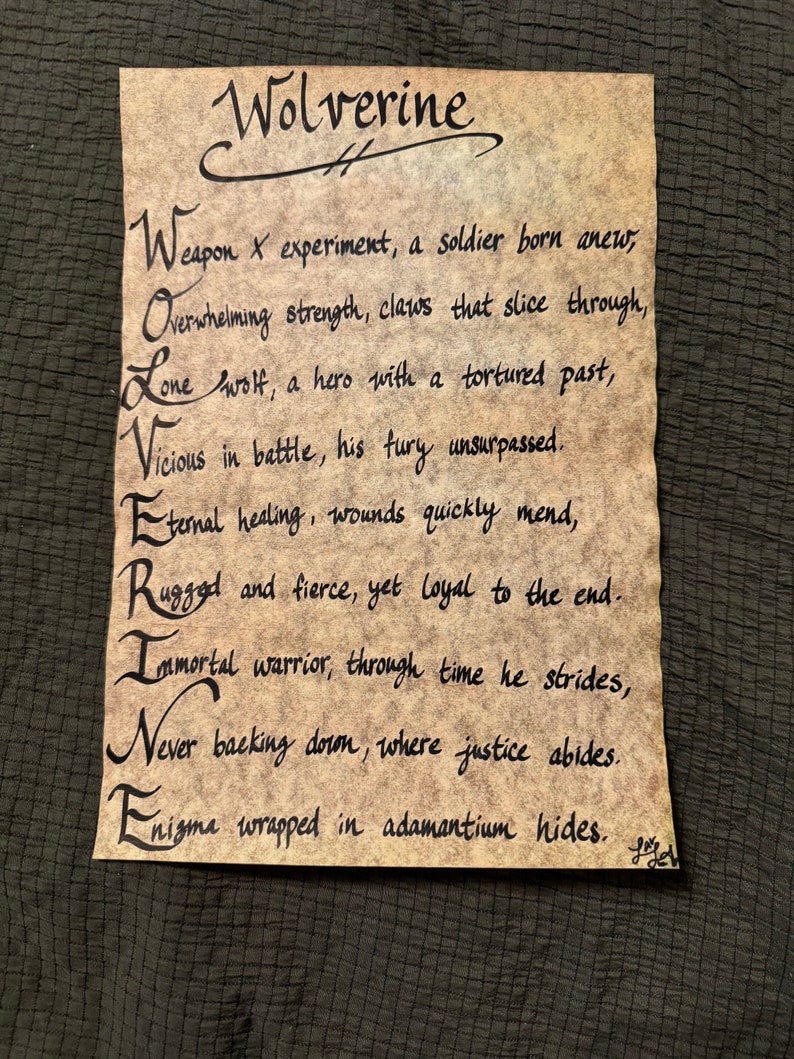 Wolverine
Weapon X experiment, a soldier born anew,
Overwhelming strength, claws that slice through,
Lone wolf, a hero with a tortured past,
Vicious in battle, his fury unsurpassed.
Eternal healing, wounds quickly mend,
Rugged and fierce, yet loyal to the end.
Immortal warrior, through time he strides,
Never backing down, where justice abides.
Enigma wrapped in adamantium hides.